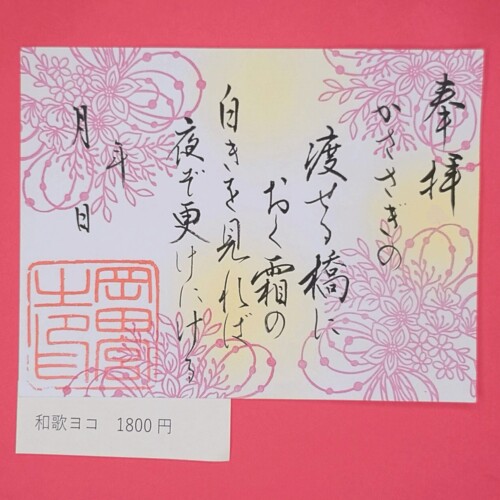 奉拝
かささぎの
渡せる橋に
おく霜の
白きを見れば
夜ぞ更けにける
年
月 日
和歌ヨコ 1800円